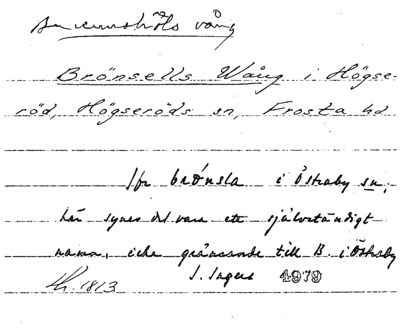 vång
Brönsells Wång i Högse-
röd, Högseröds sn, Frosta hd
Jfr brönsla i Östraby sn;
här synes det vara ett självständigt
namn, icke gränsande till B. i Östraby
1813 S. Ingers 4979